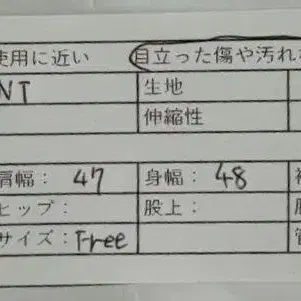 使用に近い 目立った傷や汚れな
NT 生地
伸縮性
肩幅： 47 身幅： 48
ヒップ： 股上：
サイズ：Free